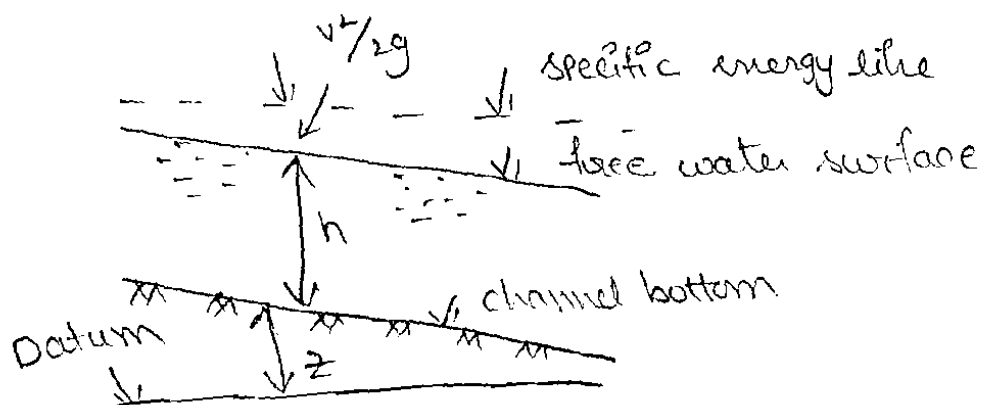 v²/2g
specific energy line
free water surface
h
channel bottom
Datum
z